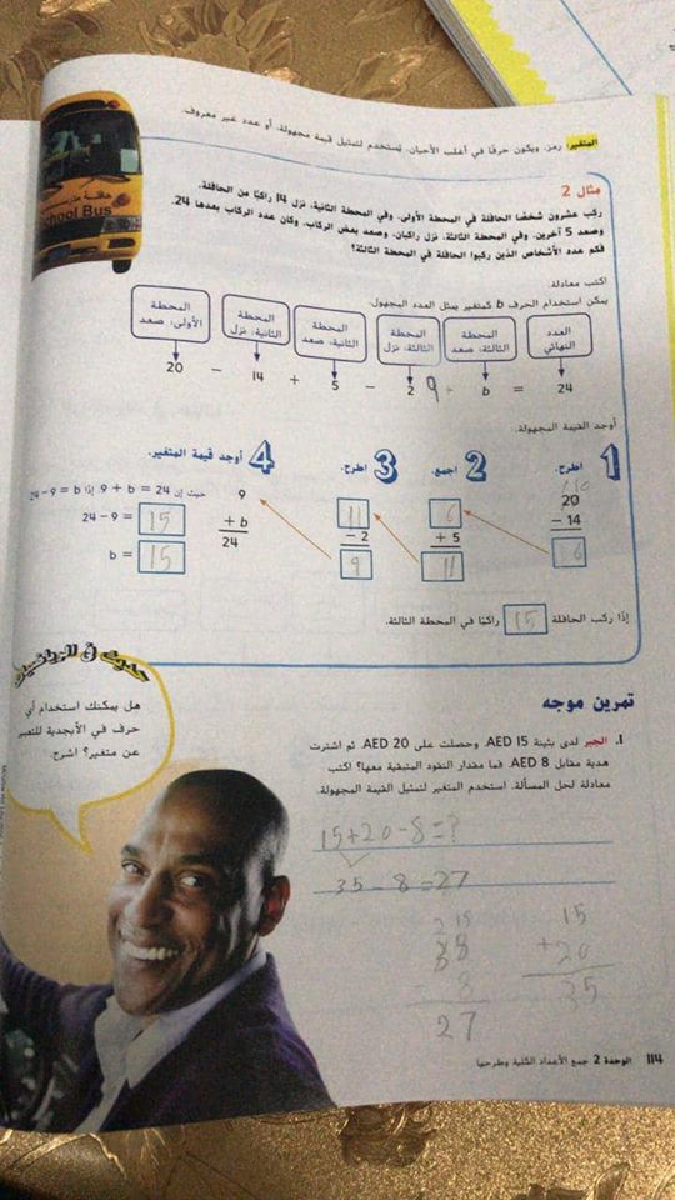 المتغير: رمز، ويكون حرفًا في أغلب الأحيان، يُستخدم لتمثيل قيمة مجهولة، أو عدد غير معروف.
حافلة مدرسية
School Bus
مثال 2
ركب عشرون شخصًا الحافلة في المحطة الأولى. وفي المحطة الثانية، نزل 14 راكبًا من الحافلة،
وصعد 5 آخرين. وفي المحطة الثالثة، نزل راكبان، وصعد بعض الركاب. وكان عدد الركاب بعدها 24.
فكم عدد الأشخاص الذين ركبوا الحافلة في المحطة الثالثة؟
اكتب معادلة.
يمكن استخدام الحرف b كمتغير يمثل العدد المجهول.
المحطة الأولى، صعد
المحطة الثانية، نزل
المحطة الثانية، صعد
المحطة الثالثة، نزل
المحطة الثالثة، صعد
العدد النهائي
20 − 14 + 5 − 2 9 + b = 24
أوجد القيمة المجهولة.
1 اطرح.
20
− 14
6
2 اجمع.
6
+ 5
11
3 اطرح.
11
− 2
9
4 أوجد قيمة المتغير.
9
+ b
24
حيث إن 9 + b = 24 إذًا 24 − 9 = b
24 − 9 = 15
b = 15
إذًا ركب الحافلة 15 راكبًا في المحطة الثالثة.
حديث في الرياضيات
هل يمكنك استخدام أي
حرف في الأبجدية للتعبير
عن متغير؟ اشرح.
تمرين موجه
1. الجبر لدى بثينة AED 15. وحصلت على AED 20. ثم اشترت
هدية مقابل AED 8. فما مقدار النقود المتبقية معها؟ اكتب
معادلة لحل المسألة. استخدم المتغير لتمثيل القيمة المجهولة.
15+20-8=?
35-8=27
15
+20
35
2 15
35
- 8
27
114 الوحدة 2 جمع الأعداد الكلية وطرحها